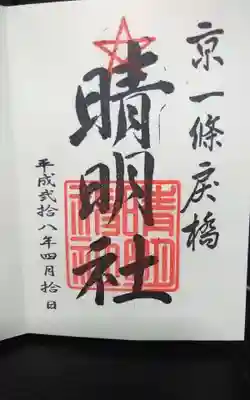 京一條戻橋
晴明社
平成弐拾八年四月拾日